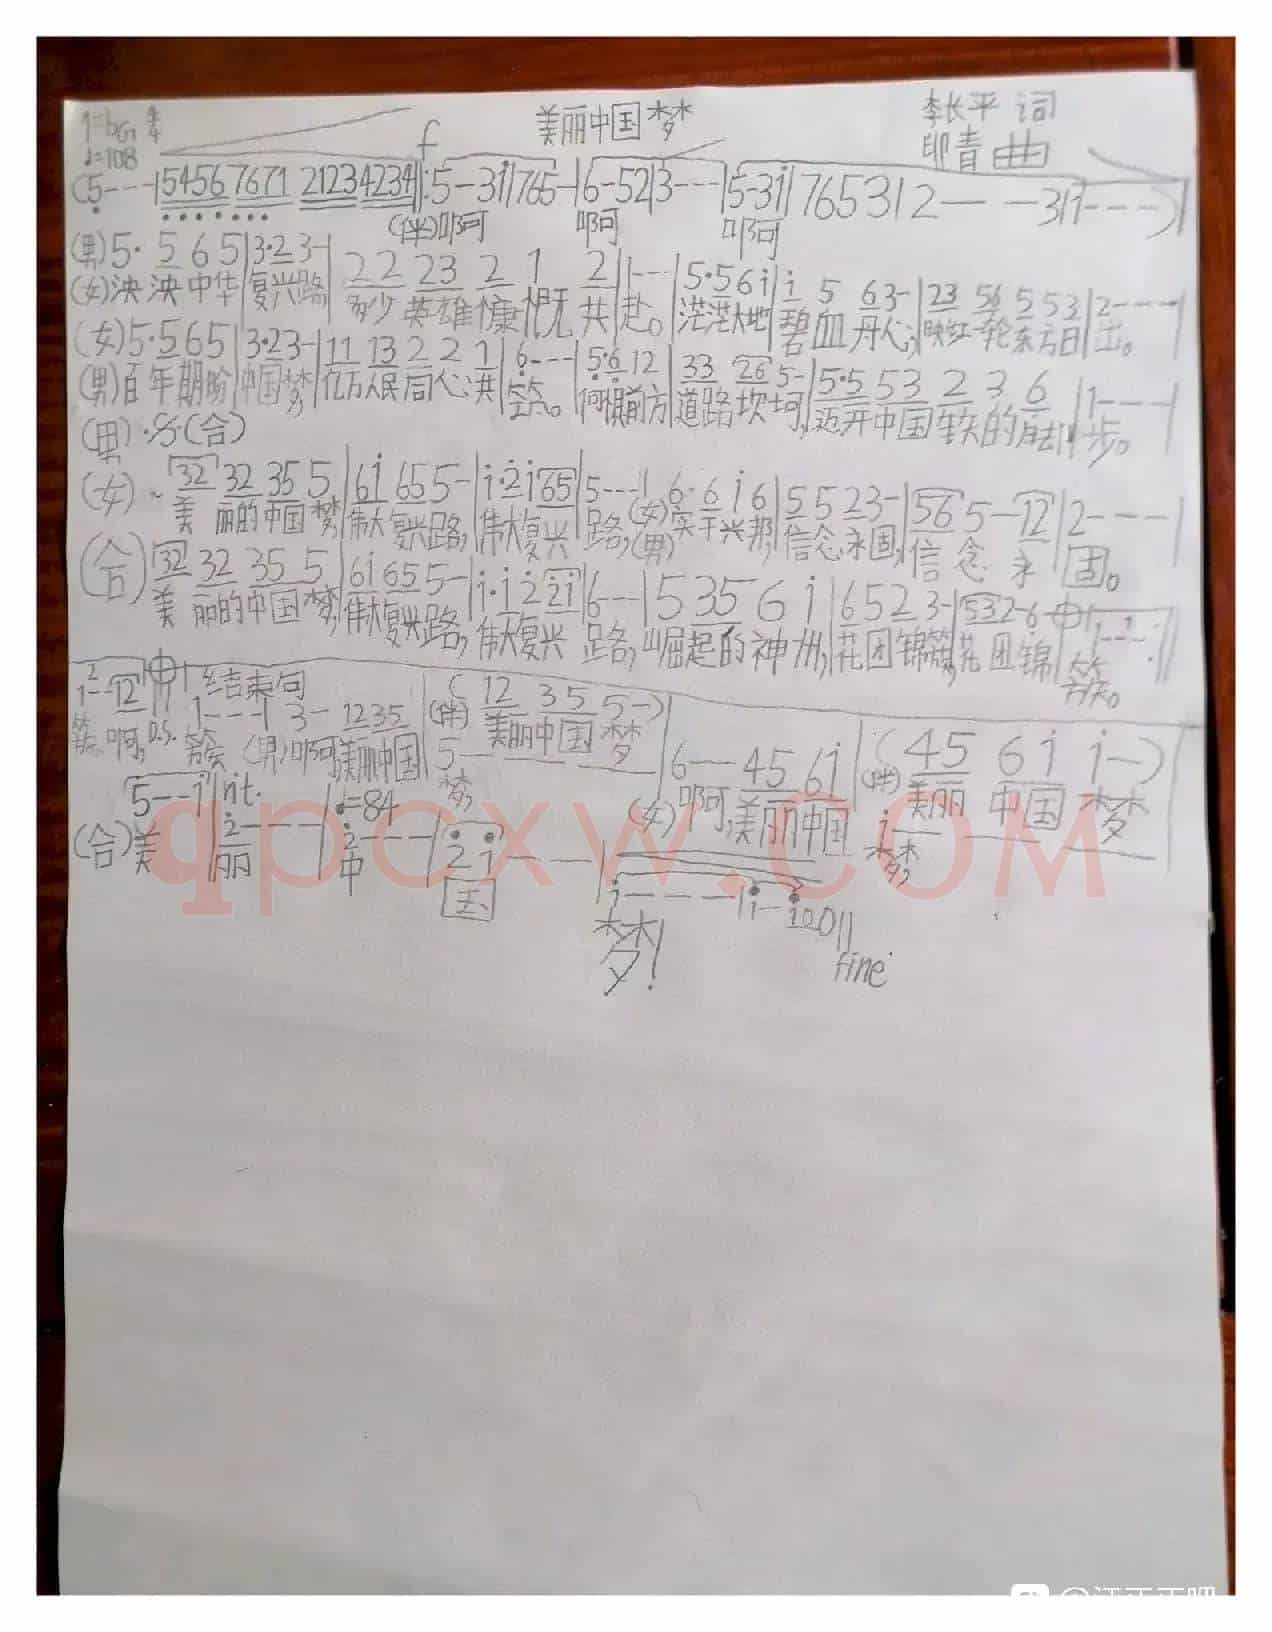 1=bG 4/4 美丽中国梦 李长平 词
♩=108 f 印青 曲
(5---|5456 7671 2123 4234‖:5-3i|765-|6-52|3---|5-3i|7653|2---3|1---)|
(伴)啊 啊 啊
(男)5· 5 6 5|3·2 3-|22 23 2 1 2|1---|5·56i|i 5 63-|23 56 5 53|2----|
(女)泱泱中华 复兴路, 多少英雄慷慨共赴。茫茫大地 碧血丹心; 映红一轮东方日出。
(女)5·565|3·23-|11 13 2 2 1|6---|5·6 12|33 26 5-|5·5 53 2 3 6|1----|
(男)百年期盼 中国梦, 亿万人民同心共筑。何惧前方道路坎坷, 迈开中国 的 步。
(男)·𝄋·(合)
(女)~ 32 32 35 5|6i 65 5-|i·2i65|5---|6·6i6|5523-|56 5-12|2---|
美丽的中国梦, 伟大复兴路, 伟大复兴路, (女)(男)实干兴邦, 信念永固, 信念永固。
(合)32 32 35 5|6i655-|i·i 2 2i|6---|5 35 6 i|6523-|532-6 𝄌|1---:‖
美丽的中国梦, 伟大复兴路, 伟大复兴路, 崛起的神州, 花团锦簇, 花团锦簇。
1--12|𝄌|结束句
1---|3-1235|(12 35 5-)|6--456i|(45 6i i-)|
簇。啊, D.S. 簇 (男)啊,美丽中国 (伴)美丽中国梦
5 梦, (女)啊,美丽中国 (伴)美丽中国梦
i 梦,
5--i|rit. 2---|♩=84 2---|2 1---|i----|i-i00‖
(合)美丽中国梦!
fine
qpcxw.com